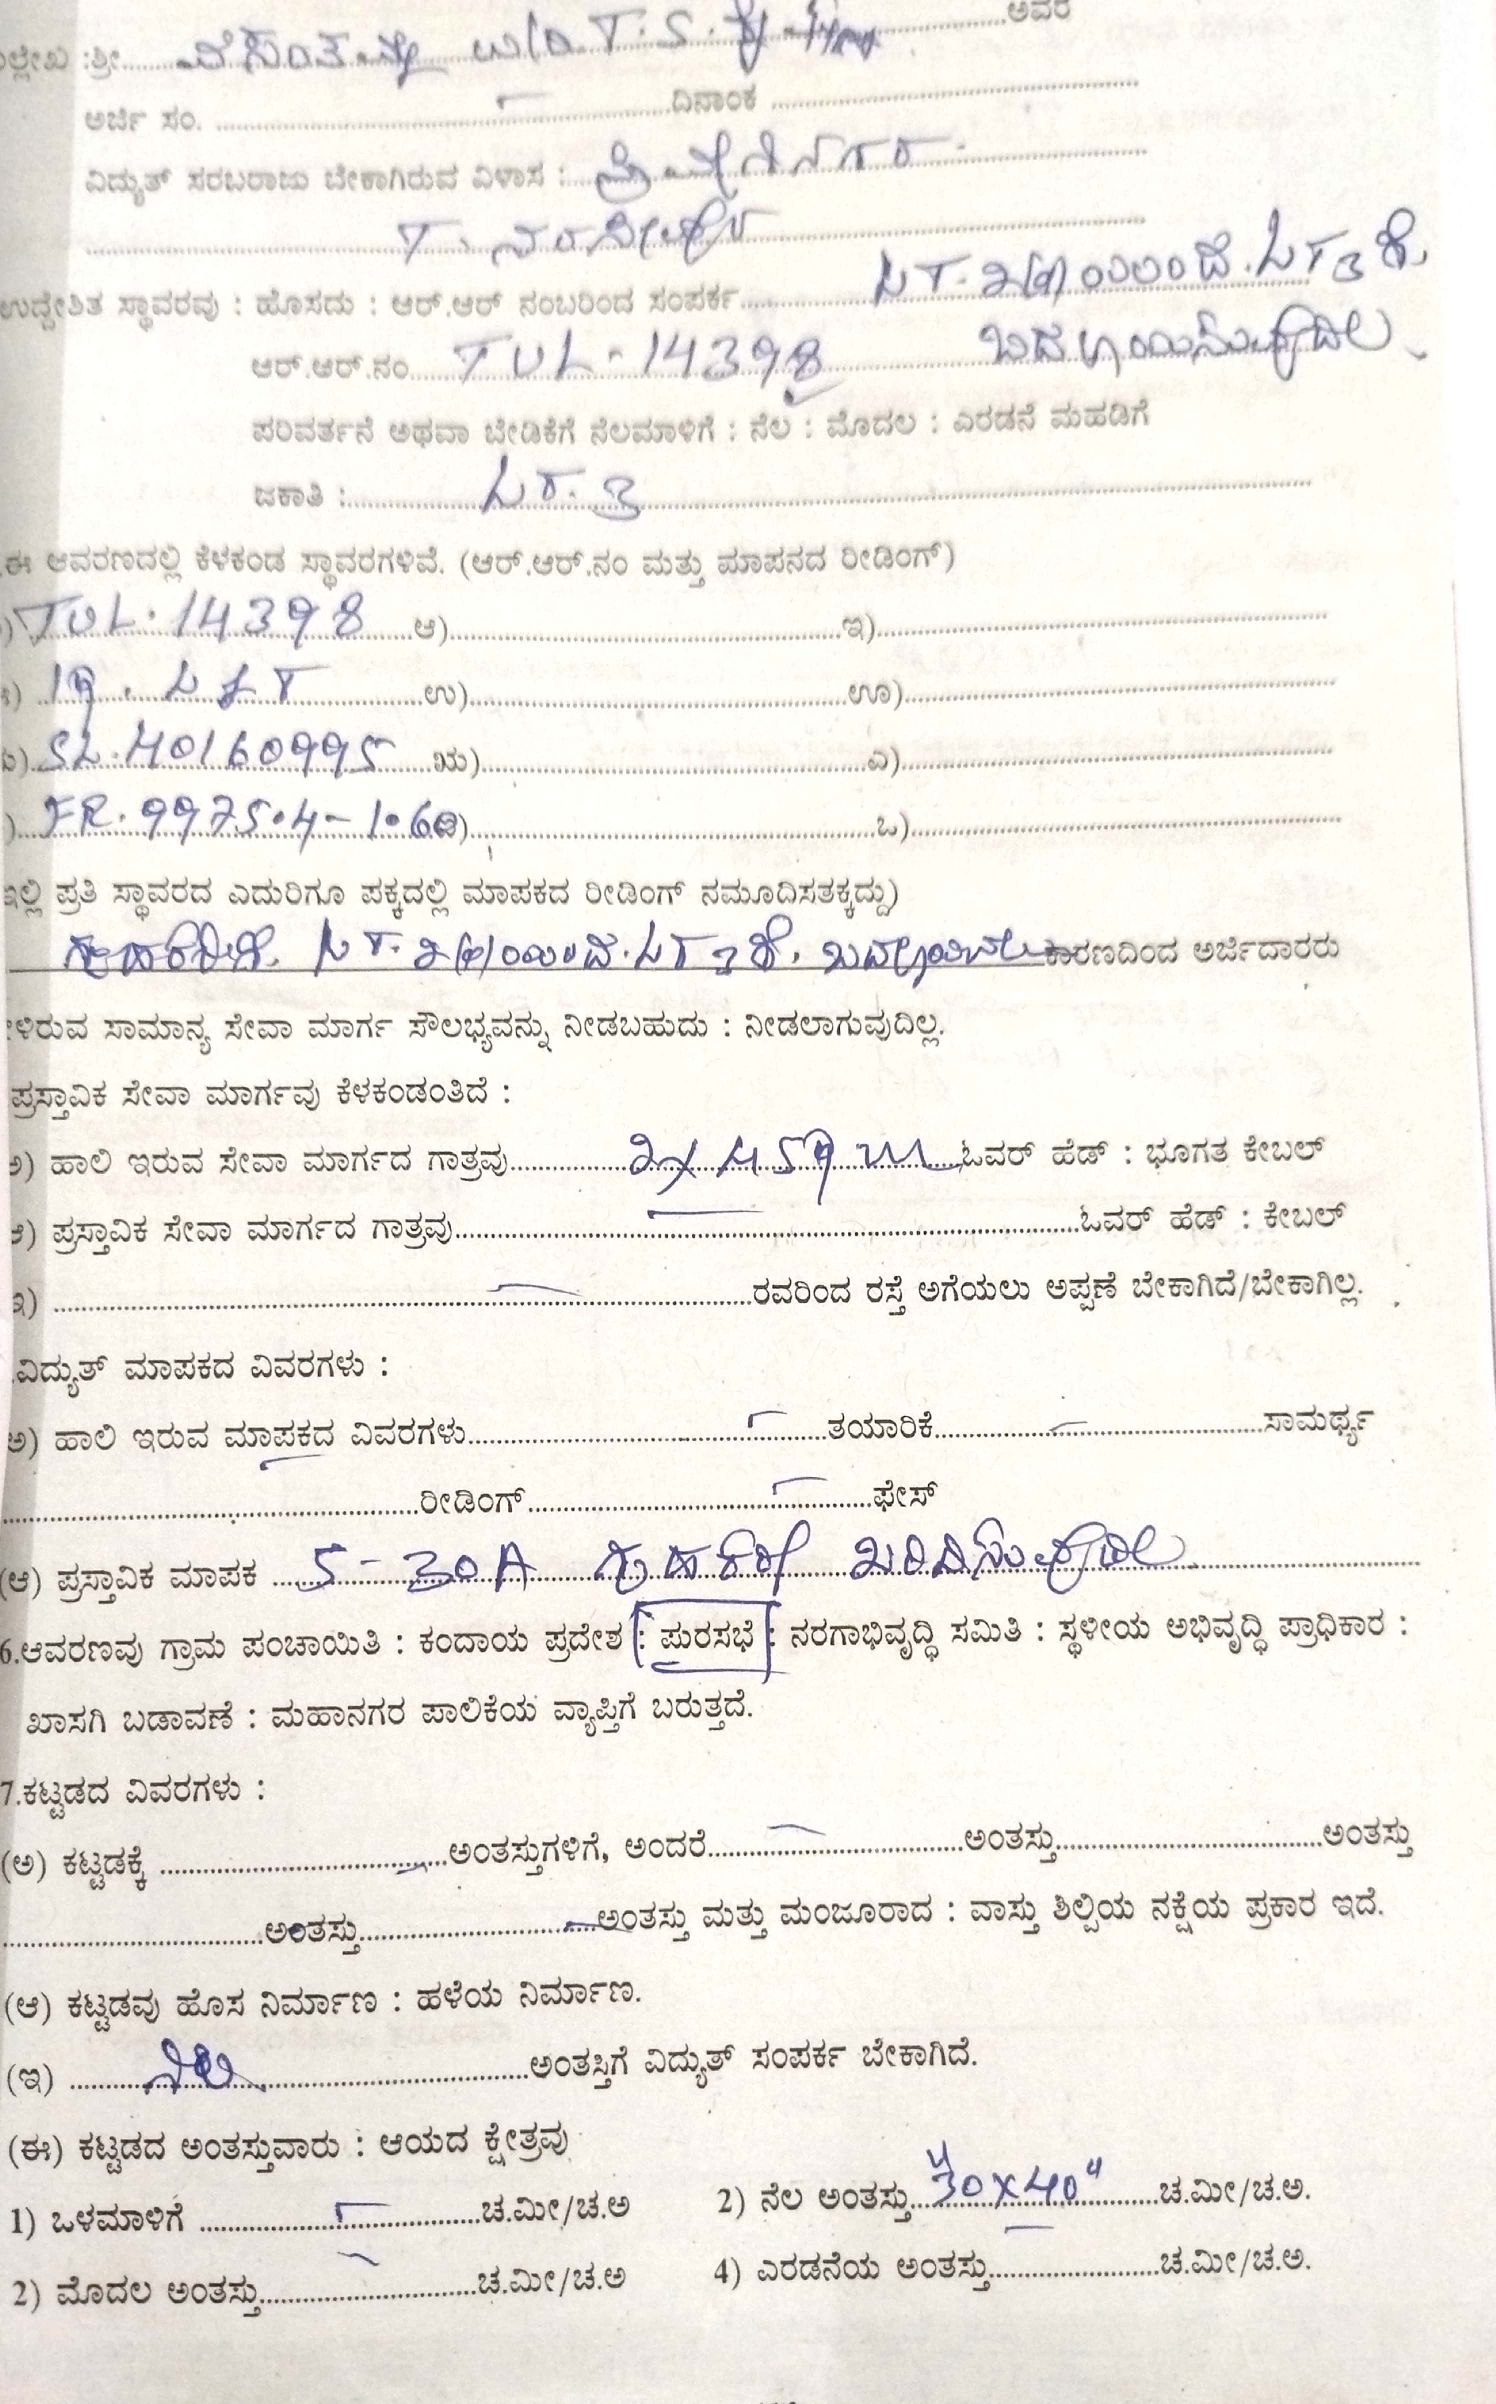 ಉಲ್ಲೇಖ :ಶ್ರೀ.................... T.S. ....................ಅವರ
ಅರ್ಜಿ ಸಂ. ....................ದಿನಾಂಕ ....................
ವಿದ್ಯುತ್ ಸರಬರಾಜು ಬೇಕಾಗಿರುವ ವಿಳಾಸ :....................
T. ನರಸೀಪುರ
ಉದ್ದೇಶಿತ ಸ್ಥಾವರವು : ಹೊಸದು : ಆರ್.ಆರ್ ನಂಬರಿಂದ ಸಂಪರ್ಕ.......... LT-2(a)ಯಿಂದ. LT3 ಕೆ.
ಆರ್.ಆರ್.ನಂ.....TUL-14398 ಬದಲಾಯಿಸುವುದಿಲ್ಲ
ಪರಿವರ್ತನೆ ಅಥವಾ ಬೇಡಿಕೆಗೆ ನೆಲಮಾಳಿಗೆ : ನೆಲ : ಮೊದಲ : ಎರಡನೆ ಮಹಡಿಗೆ
ಜಕಾತಿ :.......... LT. 3 ..........
ಈ ಆವರಣದಲ್ಲಿ ಕೆಳಕಂಡ ಸ್ಥಾವರಗಳಿವೆ. (ಆರ್.ಆರ್.ನಂ ಮತ್ತು ಮಾಪನದ ರೀಡಿಂಗ್)
) TUL.14398 .....ಆ)....................ಇ)....................
) .......... ಉ)....................ಊ)....................
) SL.40160995 ಋ)....................ಎ)....................
) FR.9975.4-1.60 )....................ಒ)....................
ಇಲ್ಲಿ ಪ್ರತಿ ಸ್ಥಾವರದ ಎದುರಿಗೂ ಪಕ್ಕದಲ್ಲಿ ಮಾಪಕದ ರೀಡಿಂಗ್ ನಮೂದಿಸತಕ್ಕದ್ದು)
LT-2(a)ಯಿಂದ. LT 3ಕೆ. ಕಾರಣದಿಂದ ಅರ್ಜಿದಾರರು
ಳಿರುವ ಸಾಮಾನ್ಯ ಸೇವಾ ಮಾರ್ಗ ಸೌಲಭ್ಯವನ್ನು ನೀಡಬಹುದು : ನೀಡಲಾಗುವುದಿಲ್ಲ.
ಪ್ರಸ್ತಾವಿಕ ಸೇವಾ ಮಾರ್ಗವು ಕೆಳಕಂಡಂತಿದೆ :
ಅ) ಹಾಲಿ ಇರುವ ಸೇವಾ ಮಾರ್ಗದ ಗಾತ್ರವು..........2x4sqm.....ಓವರ್ ಹೆಡ್ : ಭೂಗತ ಕೇಬಲ್
ಆ) ಪ್ರಸ್ತಾವಿಕ ಸೇವಾ ಮಾರ್ಗದ ಗಾತ್ರವು....................ಓವರ್ ಹೆಡ್ : ಕೇಬಲ್
ಇ) ....................ರವರಿಂದ ರಸ್ತೆ ಅಗೆಯಲು ಅಪ್ಪಣೆ ಬೇಕಾಗಿದೆ/ಬೇಕಾಗಿಲ್ಲ.
.ವಿದ್ಯುತ್ ಮಾಪಕದ ವಿವರಗಳು :
ಅ) ಹಾಲಿ ಇರುವ ಮಾಪಕದ ವಿವರಗಳು....................ತಯಾರಿಕೆ....................ಸಾಮರ್ಥ್ಯ
....................ರೀಡಿಂಗ್....................ಫೇಸ್
(ಆ) ಪ್ರಸ್ತಾವಿಕ ಮಾಪಕ .....5-30A ಗ್ರಾಹಕರೇ ಖರೀದಿಸುವುದಿಲ್ಲ....................
6.ಆವರಣವು ಗ್ರಾಮ ಪಂಚಾಯಿತಿ : ಕಂದಾಯ ಪ್ರದೇಶ : ಪುರಸಭೆ : ನರಗಾಭಿವೃದ್ಧಿ ಸಮಿತಿ : ಸ್ಥಳೀಯ ಅಭಿವೃದ್ಧಿ ಪ್ರಾಧಿಕಾರ :
ಖಾಸಗಿ ಬಡಾವಣೆ : ಮಹಾನಗರ ಪಾಲಿಕೆಯ ವ್ಯಾಪ್ತಿಗೆ ಬರುತ್ತದೆ.
7.ಕಟ್ಟಡದ ವಿವರಗಳು :
(ಅ) ಕಟ್ಟಡಕ್ಕೆ ....................ಅಂತಸ್ತುಗಳಿಗೆ, ಅಂದರೆ....................ಅಂತಸ್ತು....................ಅಂತಸ್ತು
....................ಅಂತಸ್ತು....................ಅಂತಸ್ತು ಮತ್ತು ಮಂಜೂರಾದ : ವಾಸ್ತು ಶಿಲ್ಪಿಯ ನಕ್ಷೆಯ ಪ್ರಕಾರ ಇದೆ.
(ಆ) ಕಟ್ಟಡವು ಹೊಸ ನಿರ್ಮಾಣ : ಹಳೆಯ ನಿರ್ಮಾಣ.
(ಇ) ..........ನೆಲ....................ಅಂತಸ್ತಿಗೆ ವಿದ್ಯುತ್ ಸಂಪರ್ಕ ಬೇಕಾಗಿದೆ.
(ಈ) ಕಟ್ಟಡದ ಅಂತಸ್ತುವಾರು : ಆಯದ ಕ್ಷೇತ್ರವು
1) ಒಳಮಾಳಿಗೆ ....................ಚ.ಮೀ/ಚ.ಅ 2) ನೆಲ ಅಂತಸ್ತು...30x40"..........ಚ.ಮೀ/ಚ.ಅ.
2) ಮೊದಲ ಅಂತಸ್ತು....................ಚ.ಮೀ/ಚ.ಅ 4) ಎರಡನೆಯ ಅಂತಸ್ತು....................ಚ.ಮೀ/ಚ.ಅ.